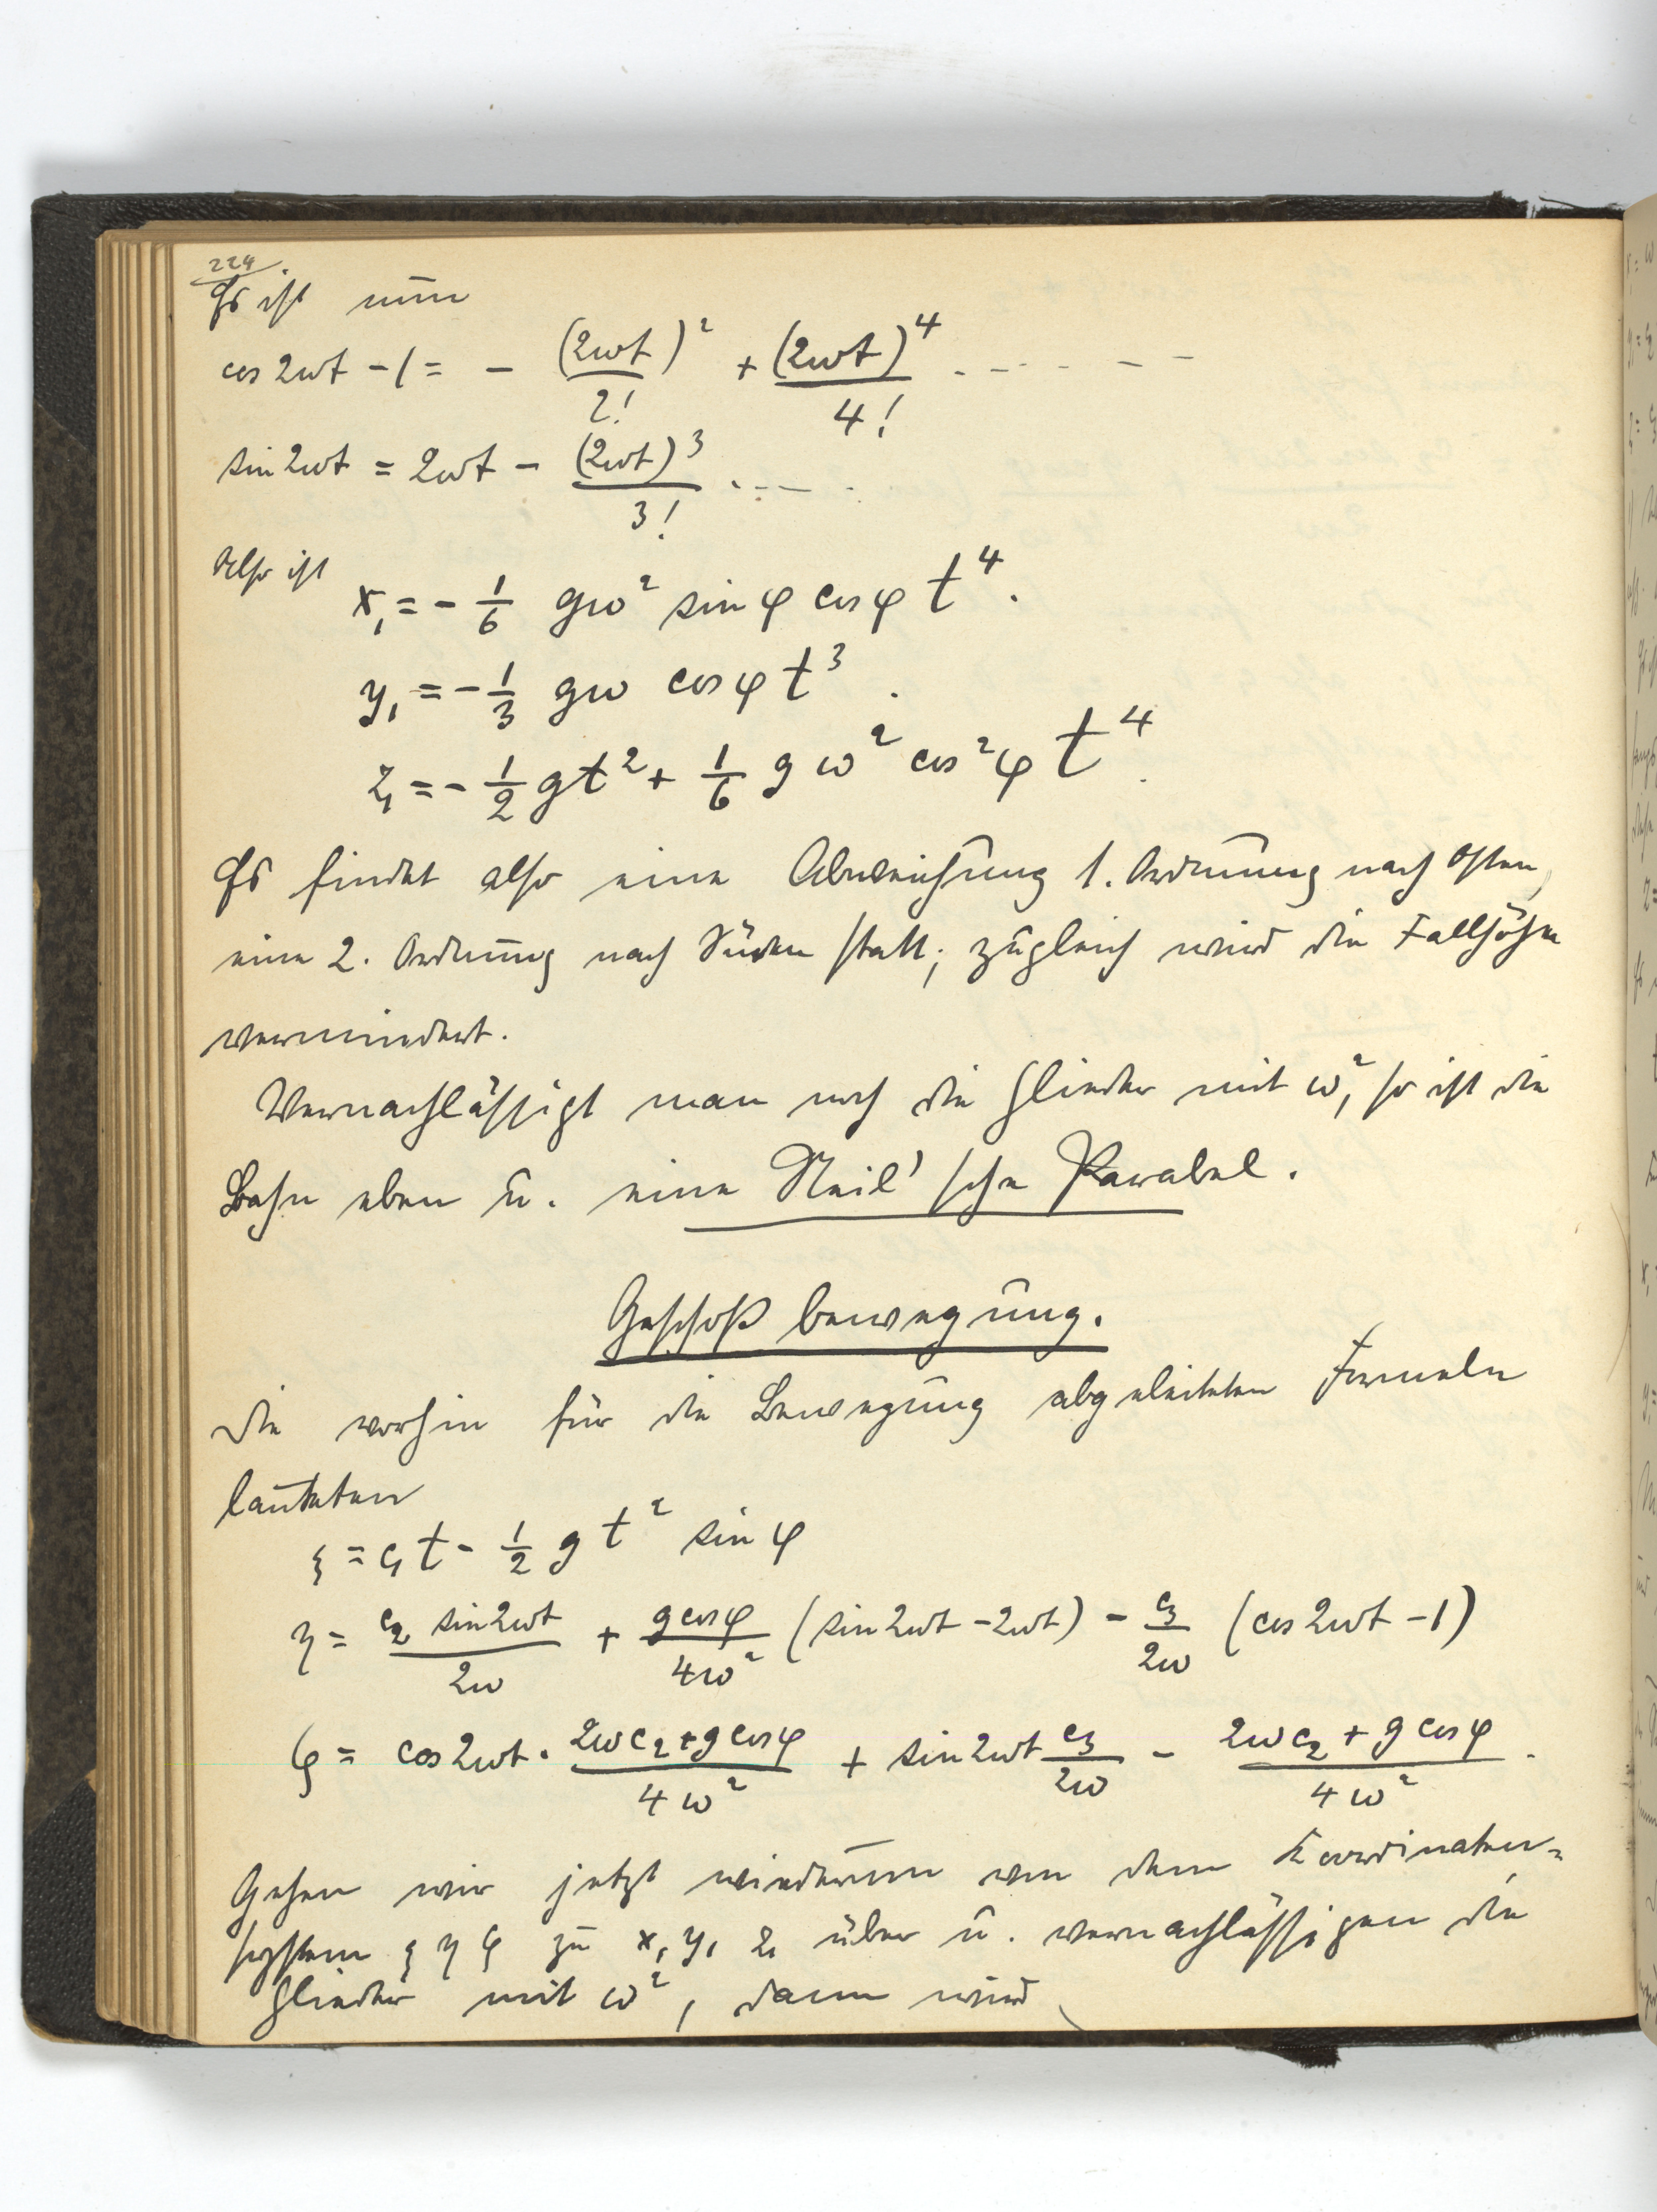 224.
Es ist nun
cos 2ωt - 1 = - (2ωt)²/2! + (2ωt)⁴/4! - - - - - -
sin 2ωt = 2ωt - (2ωt)³/3! - - - -
Also ist
x₁ = - 1/6 gω² sin φ cos φ t⁴.
y₁ = - 1/3 gω cos φ t³.
z₁ = - 1/2 gt² + 1/6 g ω² cos² φ t⁴.
Es findet also eine Abweichung 1. Ordnung nach Osten,
eine 2. Ordnung nach Süden statt; zugleich wird die Fallhöhe
vermindert.
Vernachlässigt man noch die Glieder mit ω², so ist die
Bahn eben u. eine Neil'sche Parabel.
Geschoßbewegung.
Die vorhin für die Bewegung abgeleiteten Formeln
lauteten
ξ = c₁t - 1/2 g t² sin φ
η = c₂ sin 2ωt/2ω + g cos φ/4ω² (sin 2ωt - 2ωt) - c₃/2ω (cos 2ωt - 1)
ζ = cos 2ωt · 2ωc₂ + g cos φ/4ω² + sin 2ωt c₃/2ω - 2ωc₂ + g cos φ/4ω².
Gehen wir jetzt wiederum von dem Koordinaten-
system ξ η ζ zu x₁ y₁ z₁ über u. vernachlässigen die
Glieder mit ω², dann wird